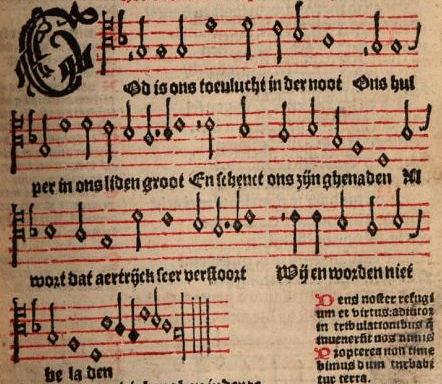 God is ons toeulucht in der noot Ons hul
per in ons liden groot En schenct ons zijn ghenaden Al
wort dat aertrijck seer verstoort Wij en worden niet
be la den
Deus noster refugi
um et virtus: adiutor
in tribulationibus q̄
inuenerūt nos nimis
Propterea non time
bimus dum turbabi
tur terra.